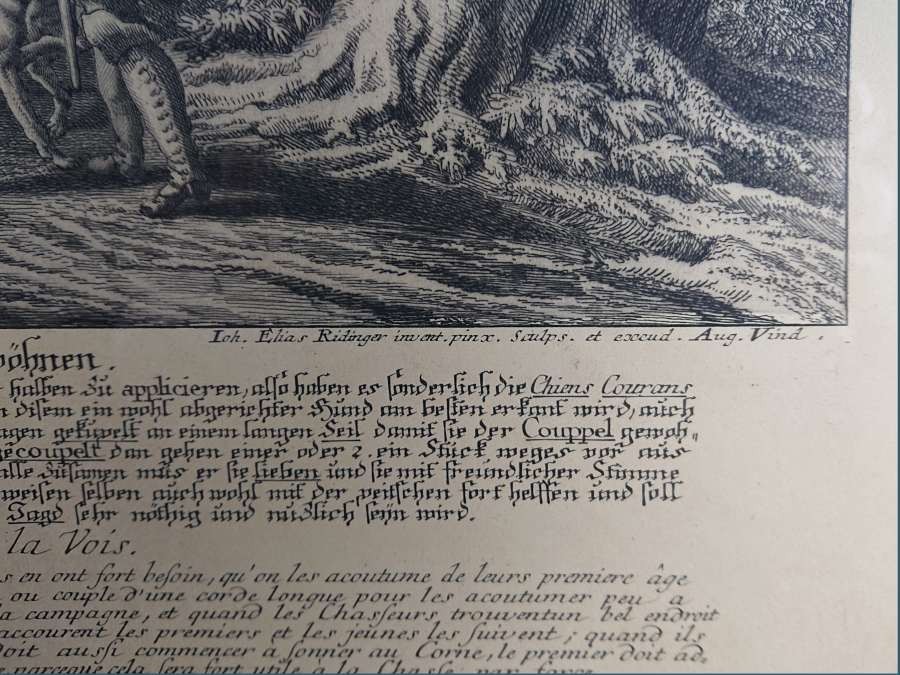 Ioh. Elias Ridinger invent. pinx. Sculps. et excud. Aug. Vind.
öhnen.
halben zu applicieren, also haben es sonderlich die Chiens Courans
disem ein wohl abgerichter Hund am besten erkant wird, auch
agen gekupelt an einem langen Seil damit sie der Couppel gewoh=
gecoupelt dan gehen einer oder 2. ein Stück weges vor aus
alle Zusamen mus er sie lieben und sie mit freundlicher Stimme
weisen selben auch wohl mit der peitschen fort helffen und soll
Jagd sehr nöthig und nuzlich seÿn wird.
la Vois.
s en ont fort besoin, qu'on les acoutume de leurs premiere âge
ou couple d'une corde longue pour les acoutumer peu a
la campagne, et quand les Chasseurs trouventun bel endroit
accourent les premiers et les jeunes les suivent; quand ils
doit aussi commencer a sonner au Corne, le premier doit ad=
parceque cela sera fort utile à la Chasse par force.